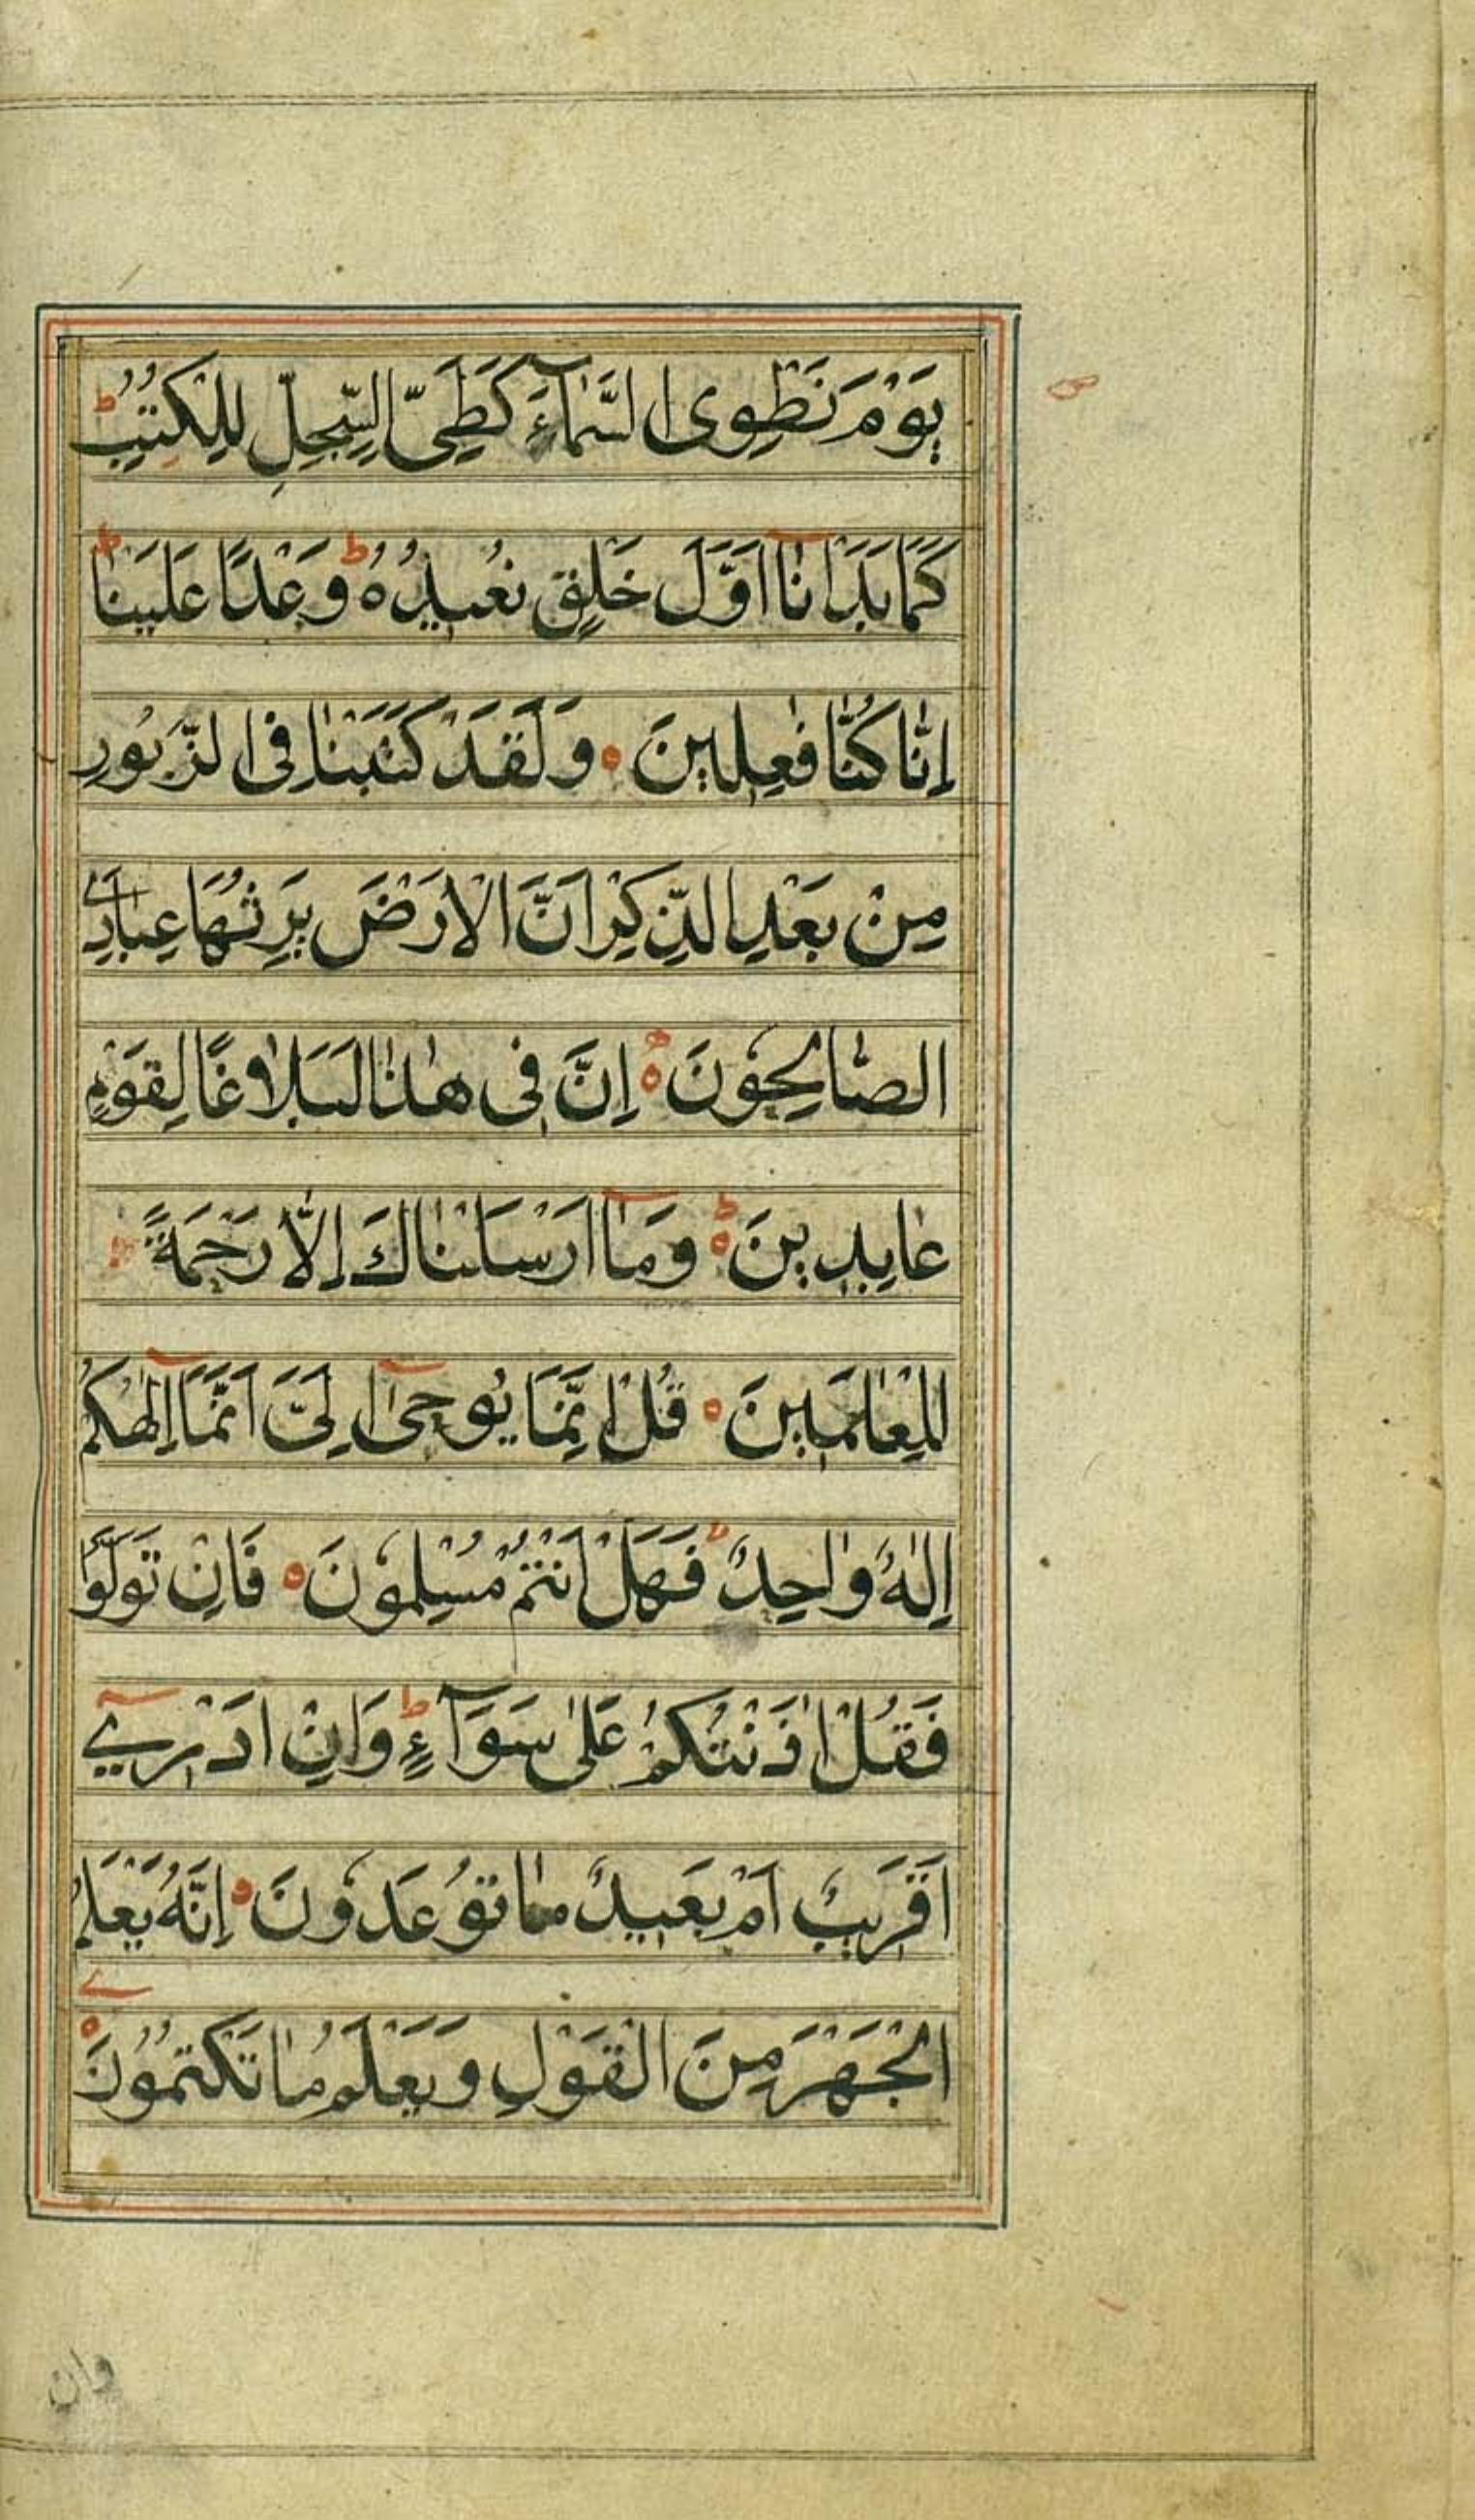 يَوْمَ نَطْوِى السَّمَآءَ كَطَىِّ السِّجِلِّ لِلْكُتُبِ ط
كَمَا بَدَاْنَآ اَوَّلَ خَلْقٍ نُعِيْدُهُ ط وَعْدًا عَلَيْنَا ط
اِنَّا كُنَّا فٰعِلِيْنَ ه وَلَقَدْ كَتَبْنَا فِى الزَّبُوْرِ
مِنْ بَعْدِ الذِّكْرِ اَنَّ الْاَرْضَ يَرِثُهَا عِبَادِىَ
الصَّالِحُوْنَ ه اِنَّ فِىْ هٰذَا لَبَلَاغًا لِقَوْمٍ
عَابِدِيْنَ ه ط وَمَآ اَرْسَلْنَاكَ اِلَّا رَحْمَةً
لِلْعَالَمِيْنَ ه قُلْ اِنَّمَا يُوحٰىٓ اِلَىَّ اَنَّمَآ اِلٰهُكُمْ
اِلٰهٌ وَاحِدٌ فَهَلْ اَنْتُمْ مُسْلِمُوْنَ ه فَاِنْ تَوَلَّوْا
فَقُلْ اٰذَنْتُكُمْ عَلٰى سَوَآءٍ ط وَاِنْ اَدْرِىٓ
اَقَرِيْبٌ اَمْ بَعِيْدٌ مَا تُوْعَدُوْنَ ه اِنَّهُ يَعْلَمُ
الْجَهْرَ مِنَ الْقَوْلِ وَيَعْلَمُ مَا تَكْتُمُوْنَ ه
وان